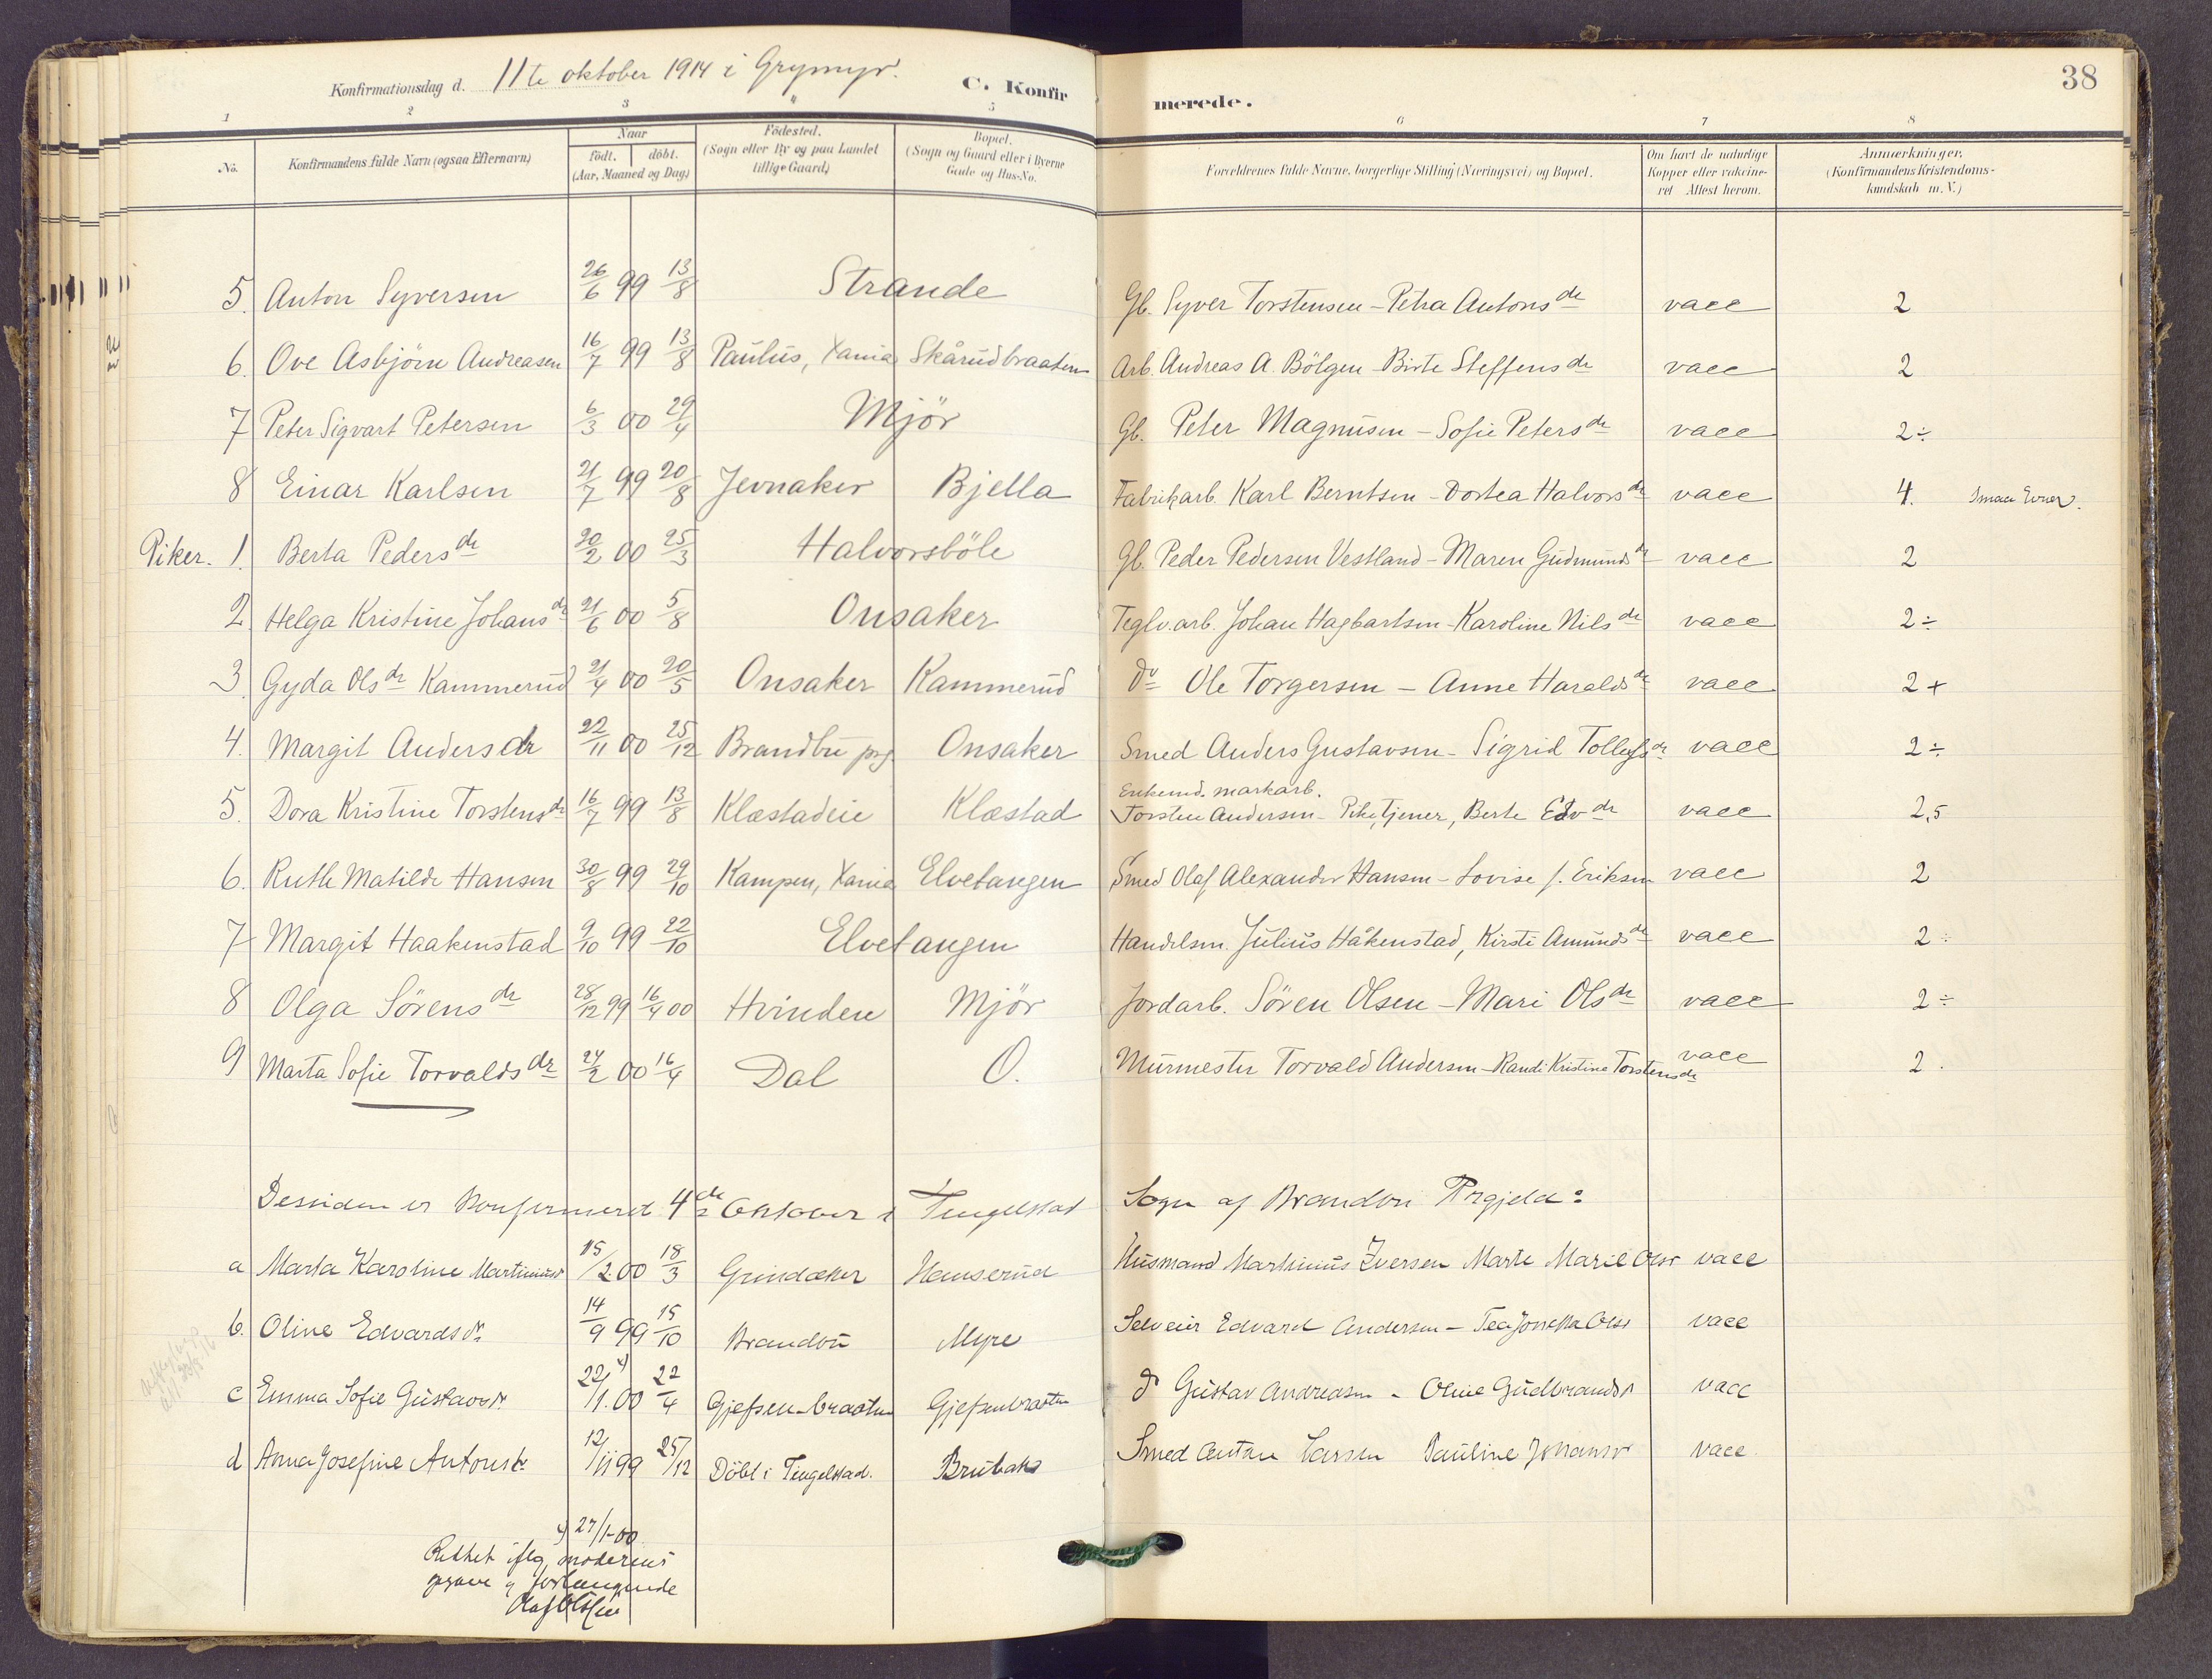 38
Konfirmationsdag d. 11te oktober 1914 i Grymyr. C. Konfir merede.
1 2 3 4 5 6 7 8
No. Konfirmandens fulde Navn (ogsaa Efternavn) Naar födt. döbt. (Aar, Maaned og Dag.) Födested. (Sogn eller By og paa Landet tillige Gaard.) Bopæl. (Sogn og Gaard eller i Byerne Gade og Hus-No. Forældrenes fulde Navne, borgerlige Stilling (Næringsvei) og Bopæl. Om havt de naturlige Kopper eller vakcineret Attest herom. Anmærkninger. (Konfirmandens Kristendomskundskab m. V.)
5. Anton Syversen 26/6 99 13/8 Strande Gb. Syver Torstensen - Petra Antonsdr vacc 2
6. Ove Asbjörn Andreasen 16/7 99 13/8 Paulus, Xania Skårudbraaten Arb. Andreas A. Bölgen - Birte Steffensdr vacc 2
7 Peter Sigvart Petersen 6/3 00 29/4 Mjör Gb. Peter Magnusen - Sofie Petersdr vacc 2÷
8 Einar Karlsen 21/7 99 20/8 Jevnaker Bjella Fabrikarb. Karl Berntsen - Dortea Halvorsdr vacc 4. Smaa Evner.
Piker. 1. Berta Pedersdr 20/2 00 25/3 Halvorsböle Gb. Peder Pedersen Vestland - Maren Gudmundsdr vacc 2
2. Helga Kristine Johansdr 21/6 00 5/8 Onsaker Teglv.arb. Johan Hagbartsen - Karoline Nilsdr vacc 2÷
3. Gyda Olsdr Kammerud 21/4 00 20/5 Onsaker Kammerud Do Ole Torgersen - Anne Haraldsdr vacc 2+
4. Margit Andersdr 22/11 00 25/12 Brandbu prg Onsaker Smed Anders Gustavsen - Sigrid Tollefsdr vacc 2÷
5. Dora Kristine Torstensdr 16/7 99 13/8 Klæstadeie Klæstad Enkemd. markarb. Torsten Andersen - Pike, tjener, Berte Edvdr vacc 2,5
6. Ruth Matilde Hansen 30/8 99 29/10 Kampen, Xania Elvetangen Smed Olaf Alexander Hansen - Lovise f. Eriksen vacc 2
7 Margit Haakenstad 9/10 99 22/10 Elvetangen Handelsm. Julius Håkenstad, Kirsti Amundsdr vacc 2÷
8 Olga Sörensdr 28/12 99 16/4 00 Hvinden Mjör Jordarb. Sören Olsen - Mari Olsdr vacc 2÷
9 Marta Sofie Torvaldsdr 24/2 00 16/4 Dal O. Murmester Torvald Andersen - Randi Kristine Torstensdr vacc 2.
Dessuden er Konfirmeret 4de Oktober i Tingelstad Sogn af Brandbu Prgjeld:
a Marta Karoline Martinusdr 15/2 00 18/3 Grindaker Hanserud Husmand Martinius Iversen Marte Marie Olsdr vacc
b. Oline Edvardsdr. 14/9 99 15/10 Brandbu Myre Selveier Edvard Andersen - Tea Jonetta Olsdr vacc
c Emma Sofie Gustavsdr. 22/1.00 x) 22/4 Gjefsen-braaten Gjefsenbraaten Do Gustav Andreasen - Oline Gudbrandsdr vacc
d Anna Josefine Antonsdr. 12/11 99 25/12 Döbt i Tingelstad. Brubak Smed Anton Larsen Pauline Johansdr vacc.
x) 27/1-00
Rettet iflg. moderens
opgave og forlangende
Olaf Olsen